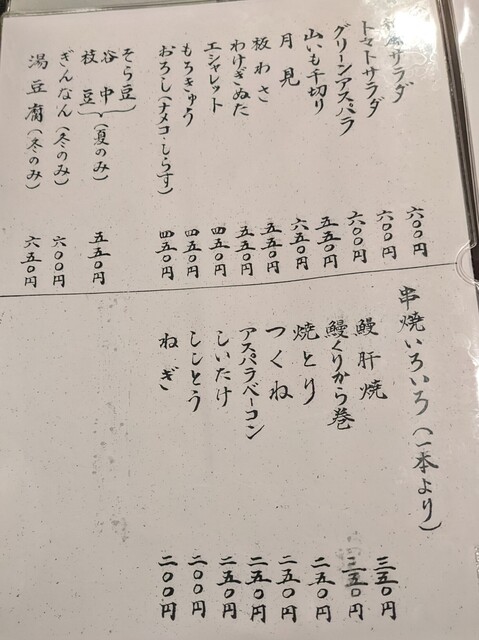 サラダ 六〇〇円
トマトサラダ 六〇〇円
グリーンアスパラ 六〇〇円
山いも千切り 五五〇円
月見 六五〇円
板わさ 五五〇円
わけぎぬた 五五〇円
エシャレット 四五〇円
もろきゅう 四五〇円
おろし(ナメコ・しらす) 四五〇円
そら豆
谷中
枝豆
(夏のみ) 五五〇円
ぎんなん(冬のみ) 六〇〇円
湯豆腐(冬のみ) 六五〇円
串焼いろいろ(一本より)
鰻肝焼 三五〇円
鰻くりから巻 三五〇円
焼とり 二五〇円
つくね 二五〇円
アスパラベーコン 二五〇円
しいたけ 二五〇円
ししとう 二〇〇円
ねぎ 二〇〇円